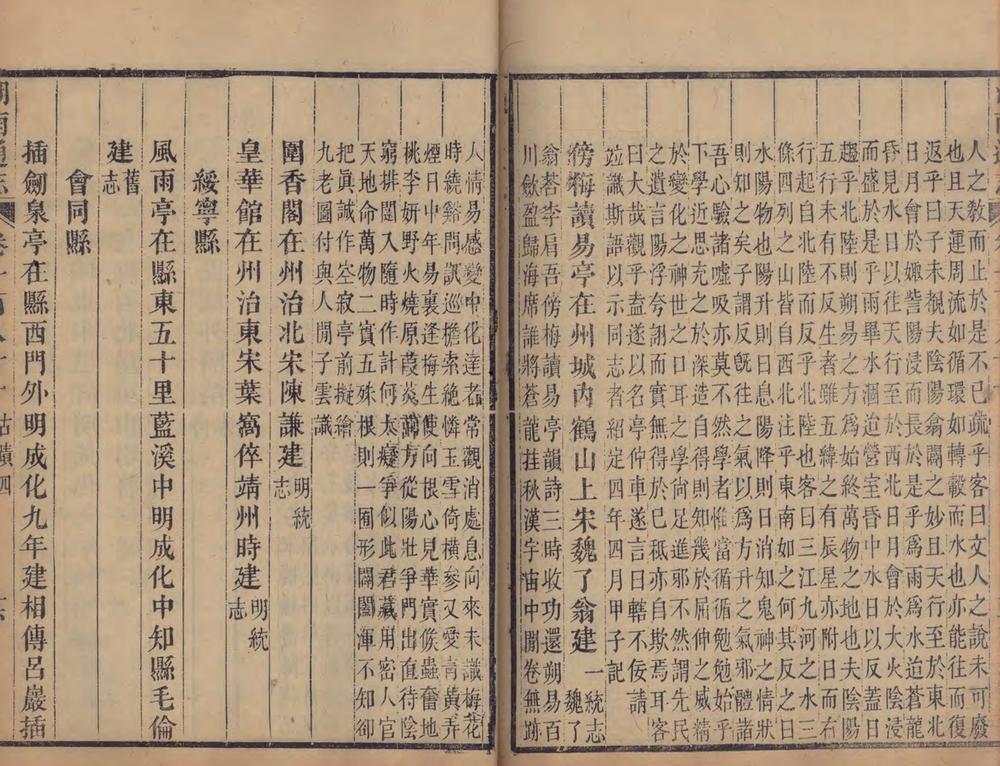 人之教而止於是不已疏乎客曰文人之說未可廢
也且天運周流如循環如轉轂而水也亦能往而復
返乎曰子未覩夫陰陽翕闢之妙且天行至於東北
日月會於娵訾陽浸而長於是乎爲雨爲水迨蒼龍
昏見水日以往天行至於西北日月會於大火陰浸
而盛於是乎雨畢水涸迨營室昏中水日以反蓋日
趨乎北陸則朔易之方爲始終萬物之地也夫陰陽
五行未有不反生者雖五緯之有辰星亦附日而右
行起自北陸而反乎北陸也客曰三江九河之水三
條四列之山皆自西北注乎東南如之何其反之曰
水陽物也陽升則日息陽降則日消知鬼神之情狀
則知之矣子謂反旣往之氣以爲方升之氣邪體諸
吾心驗諸噓吸亦莫不然學者惟當循循勉勉始乎
下學近思充之於深造自得則知幾於屈伸之感精
於變化之神世之口耳之學尙足進邪不然謂先民
之遺言陽浮夸詡而實無得於已秖亦自欺焉耳客
曰大哉觀乎盍遂以名亭仲車遂言曰轄不佞請
竝識斯語以示同志者紹定四年四月甲子記
傍梅讀易亭在州城內鶴山上宋魏了翁建一統志魏了
翁荅李肩吾傍梅讀易亭韻詩三時收功還朔易百
川斂盈歸海席誰將蒼龍挂秋漢宇宙中閒卷無跡
人情易感變中化達者常觀消處息向來未識梅花
時繞谿問訊巡檐索絶憐玉雪倚橫參又愛靑黃弄
煙日中年易裏逢梅生便向根心見華實俟蟲奮地
桃李妍野火燒原葭菼茁方從陽壯爭門出直待陰
窮排闥入隨時作計何太癡爭似此君藏用密人官
天地命萬物二實五殊根則一囿形闔闢渾不知卻
把眞誠作空寂亭前擬繪
九老圖付與人閒子雲識
圍香閣在州治北宋陳謙建明統志
皇華館在州治東宋葉窩倅靖州時建明統志
綏寧縣
風雨亭在縣東五十里藍溪中明成化中知縣毛倫
建舊志
會同縣
插劒泉亭在縣西門外明成化九年建相傳呂巖插
湖南通志